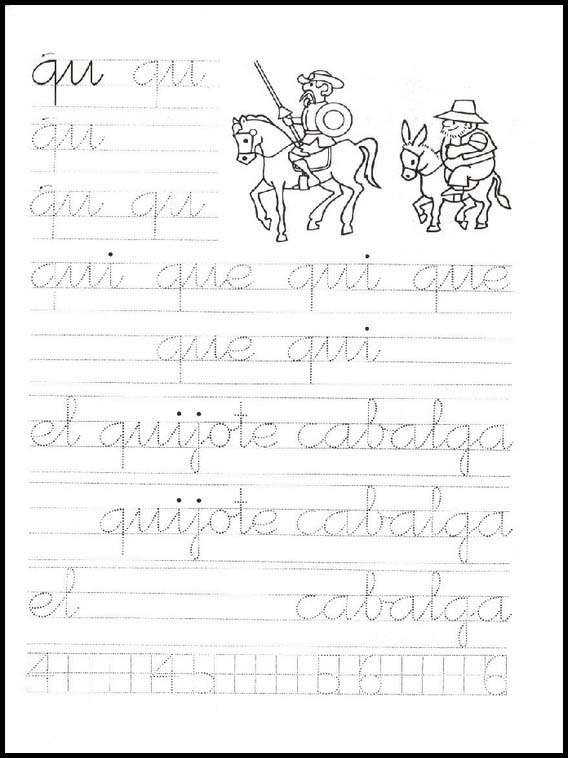 qu qu
qu
qu qu
qui que qui que
que qui
el quijote cabalga
quijote cabalga
el cabalga
4 4 5 5 6 6